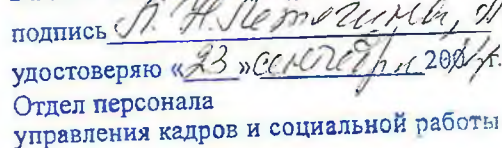 подпись Л. Н.
удостоверяю «23» сентября 200 г.
Отдел персонала
управления кадров и социальной работы